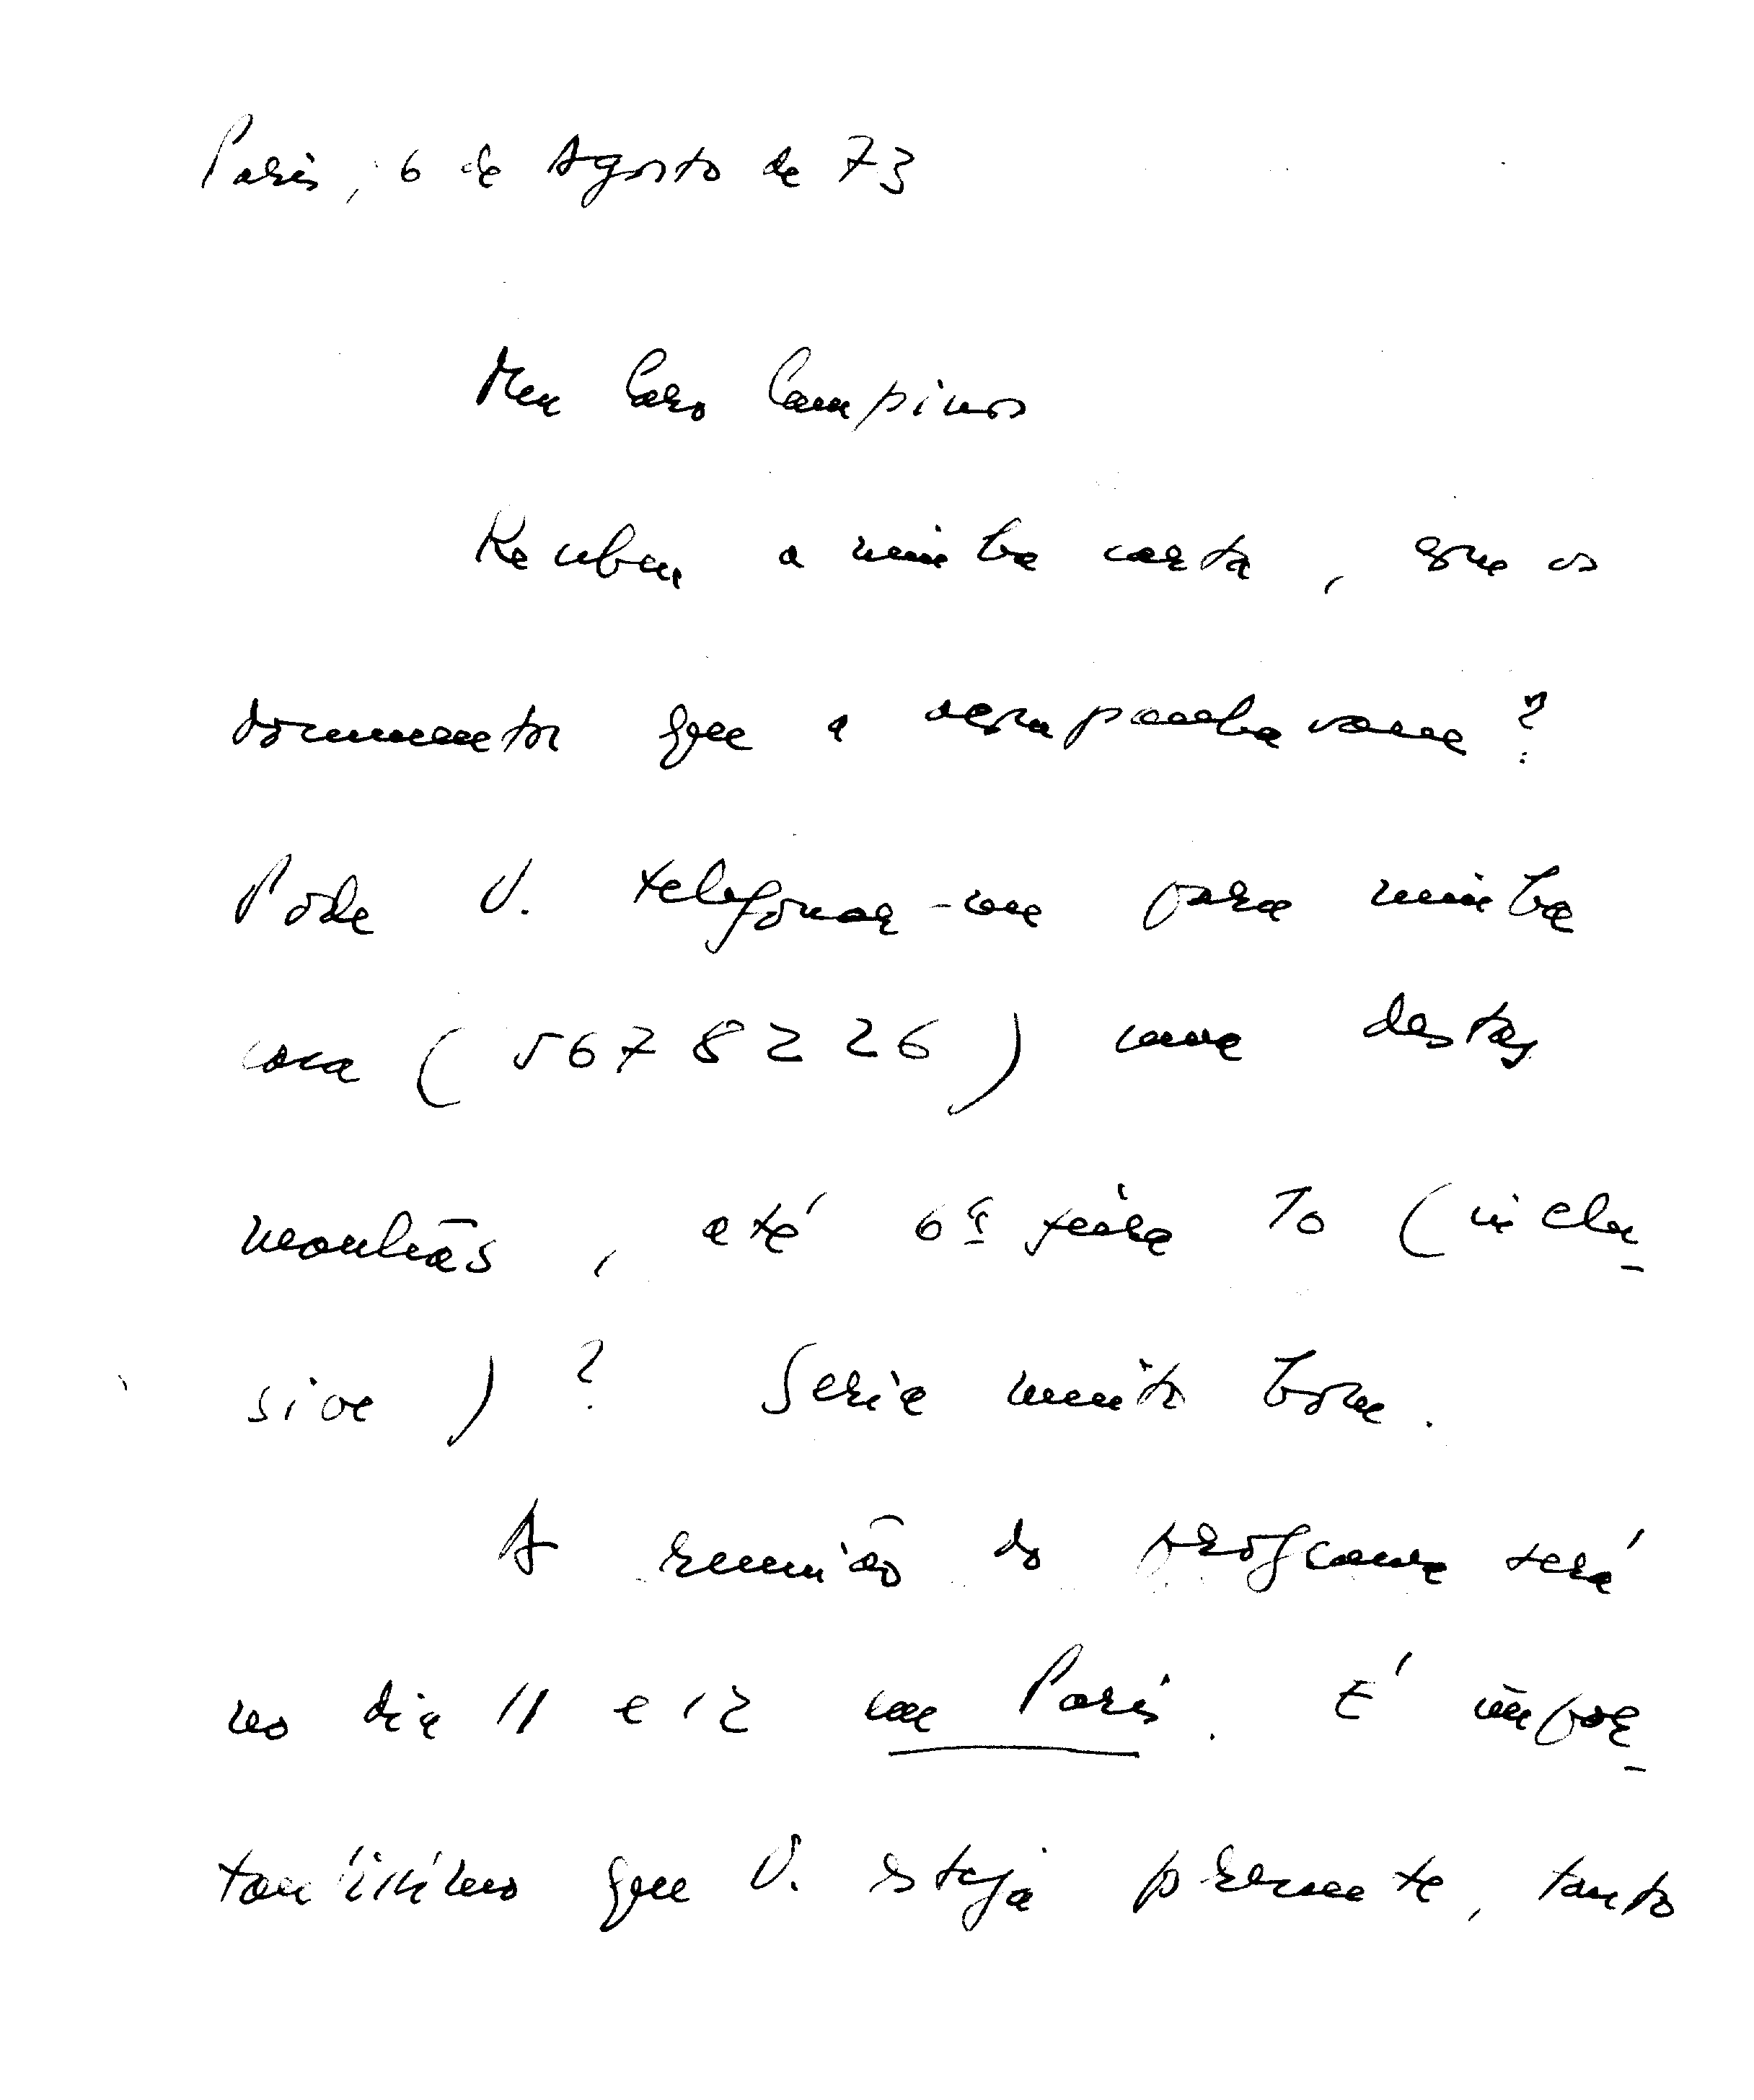 Paris, 6 de Agosto de 73
Meu Caro Campinos
Recebeu a minha carta, e os
documentos que a acompanhavam?
Pode V. telefonar-me para minha
casa (5678226) uma destas
manhãs, até 6ª feira 10 (inclu-
sive)? Seria muito bom.
A reunião do programa será
no dia 11 e 12 em Paris. É impor-
tantíssimo que V. esteja presente, tanto